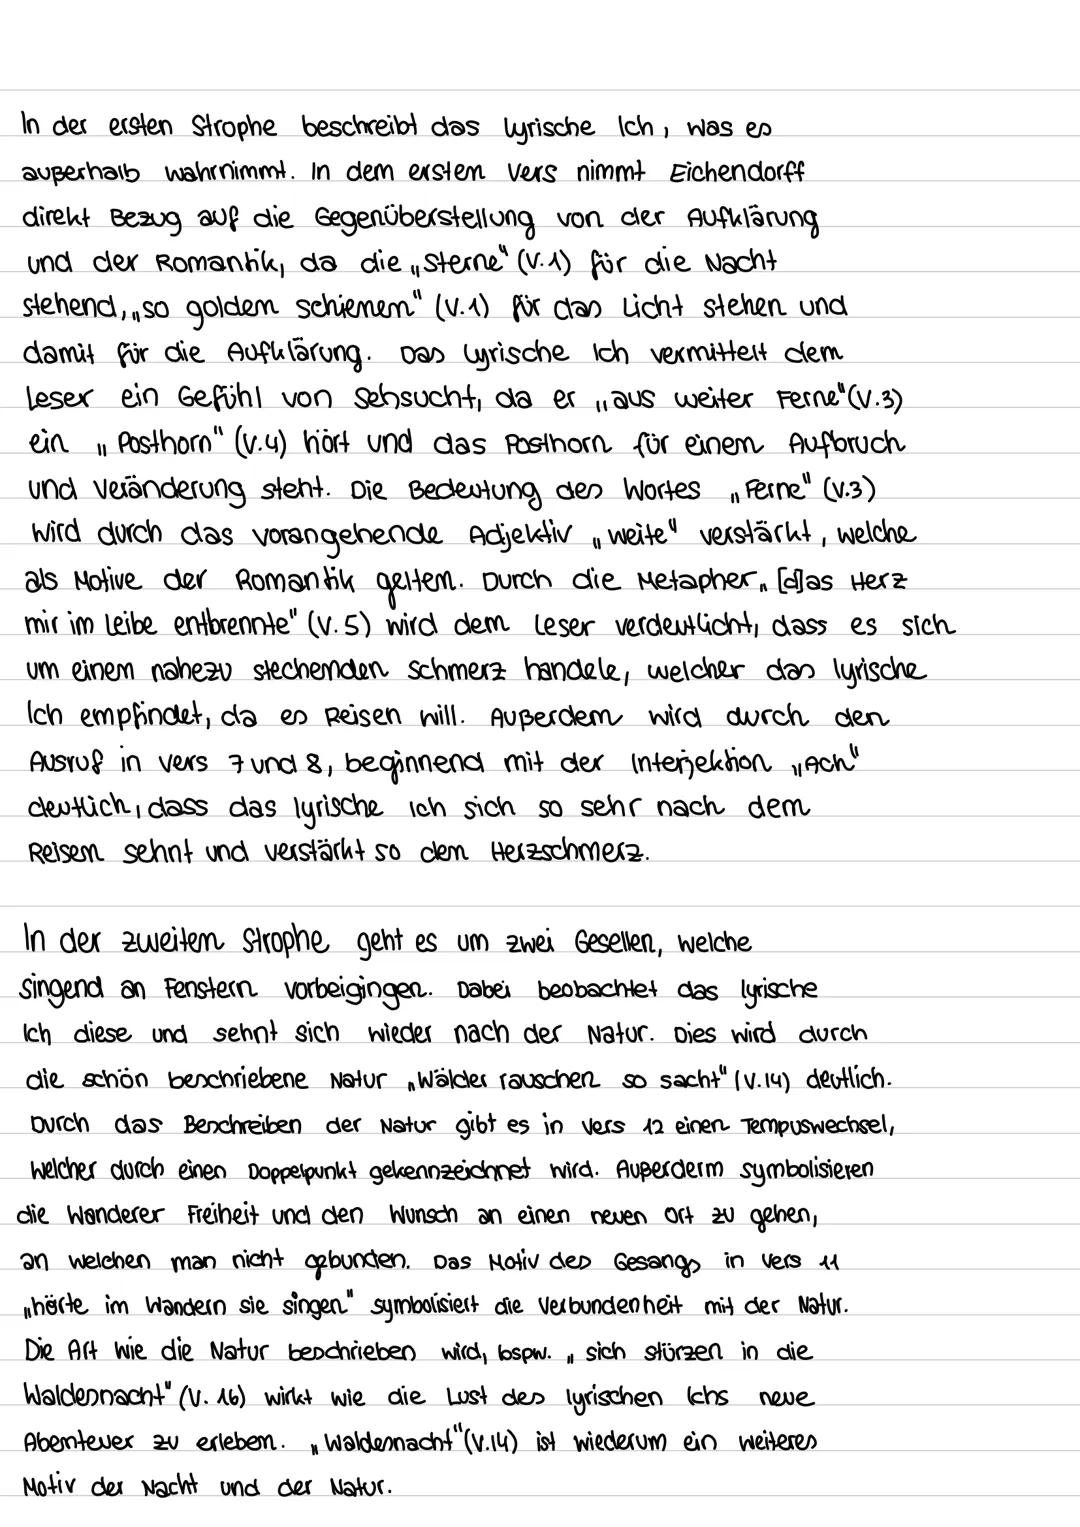 In der ersten Strophe beschreibt das lyrische Ich, was es
außerhalb wahrnimmt. In dem ersten Vers nimmt Eichendorff
direkt Bezug auf die Gegenüberstellung von der Aufklärung
und der Romantik, da die „Sterne" (V.1) für die Nacht
stehend, „so golden schienen" (V.1) für das Licht stehen und
damit für die Aufklärung. Das lyrische Ich vermittelt dem
Leser ein Gefühl von Sehsucht, da er „aus weiter Ferne" (V.3)
ein „Posthorn" (V.4) hört und das Posthorn für einen Aufbruch
und Veränderung steht. Die Bedeutung des Wortes „Ferne" (V.3)
wird durch das vorangehende Adjektiv „weite" verstärkt, welche
als Motive der Romantik gelten. Durch die Metapher „[d]as Herz
mir im Leibe entbrennte" (V.5) wird dem Leser verdeutlicht, dass es sich
um einen nahezu stechenden Schmerz handele, welcher das lyrische
Ich empfindet, da es Reisen will. Außerdem wird durch den
Ausruf in Vers 7 und 8, beginnend mit der Interjektion „Ach"
deutlich, dass das lyrische Ich sich so sehr nach dem
Reisen sehnt und verstärkt so den Herzschmerz.
In der zweiten Strophe geht es um zwei Gesellen, welche
singend an Fenstern vorbeigingen. Dabei beobachtet das lyrische
Ich diese und sehnt sich wieder nach der Natur. Dies wird durch
die schön beschriebene Natur „Wälder rauschen so sacht" (V.14) deutlich.
Durch das Beschreiben der Natur gibt es in Vers 12 einen Tempuswechsel,
welcher durch einen Doppelpunkt gekennzeichnet wird. Außerderm symbolisieren
die Wanderer Freiheit und den Wunsch an einen neuen Ort zu gehen,
an welchen man nicht gebunden. Das Motiv des Gesangs in Vers 11
„hörte im Wandern sie singen" symbolisiert die Verbundenheit mit der Natur.
Die Art wie die Natur beschrieben wird, bspw. „sich stürzen in die
Waldesnacht" (V. 16) wirkt wie die Lust des lyrischen Ichs neue
Abenteuer zu erleben. „Waldesnacht" (V.14) ist wiederum ein weiteres
Motiv der Nacht und der Natur.